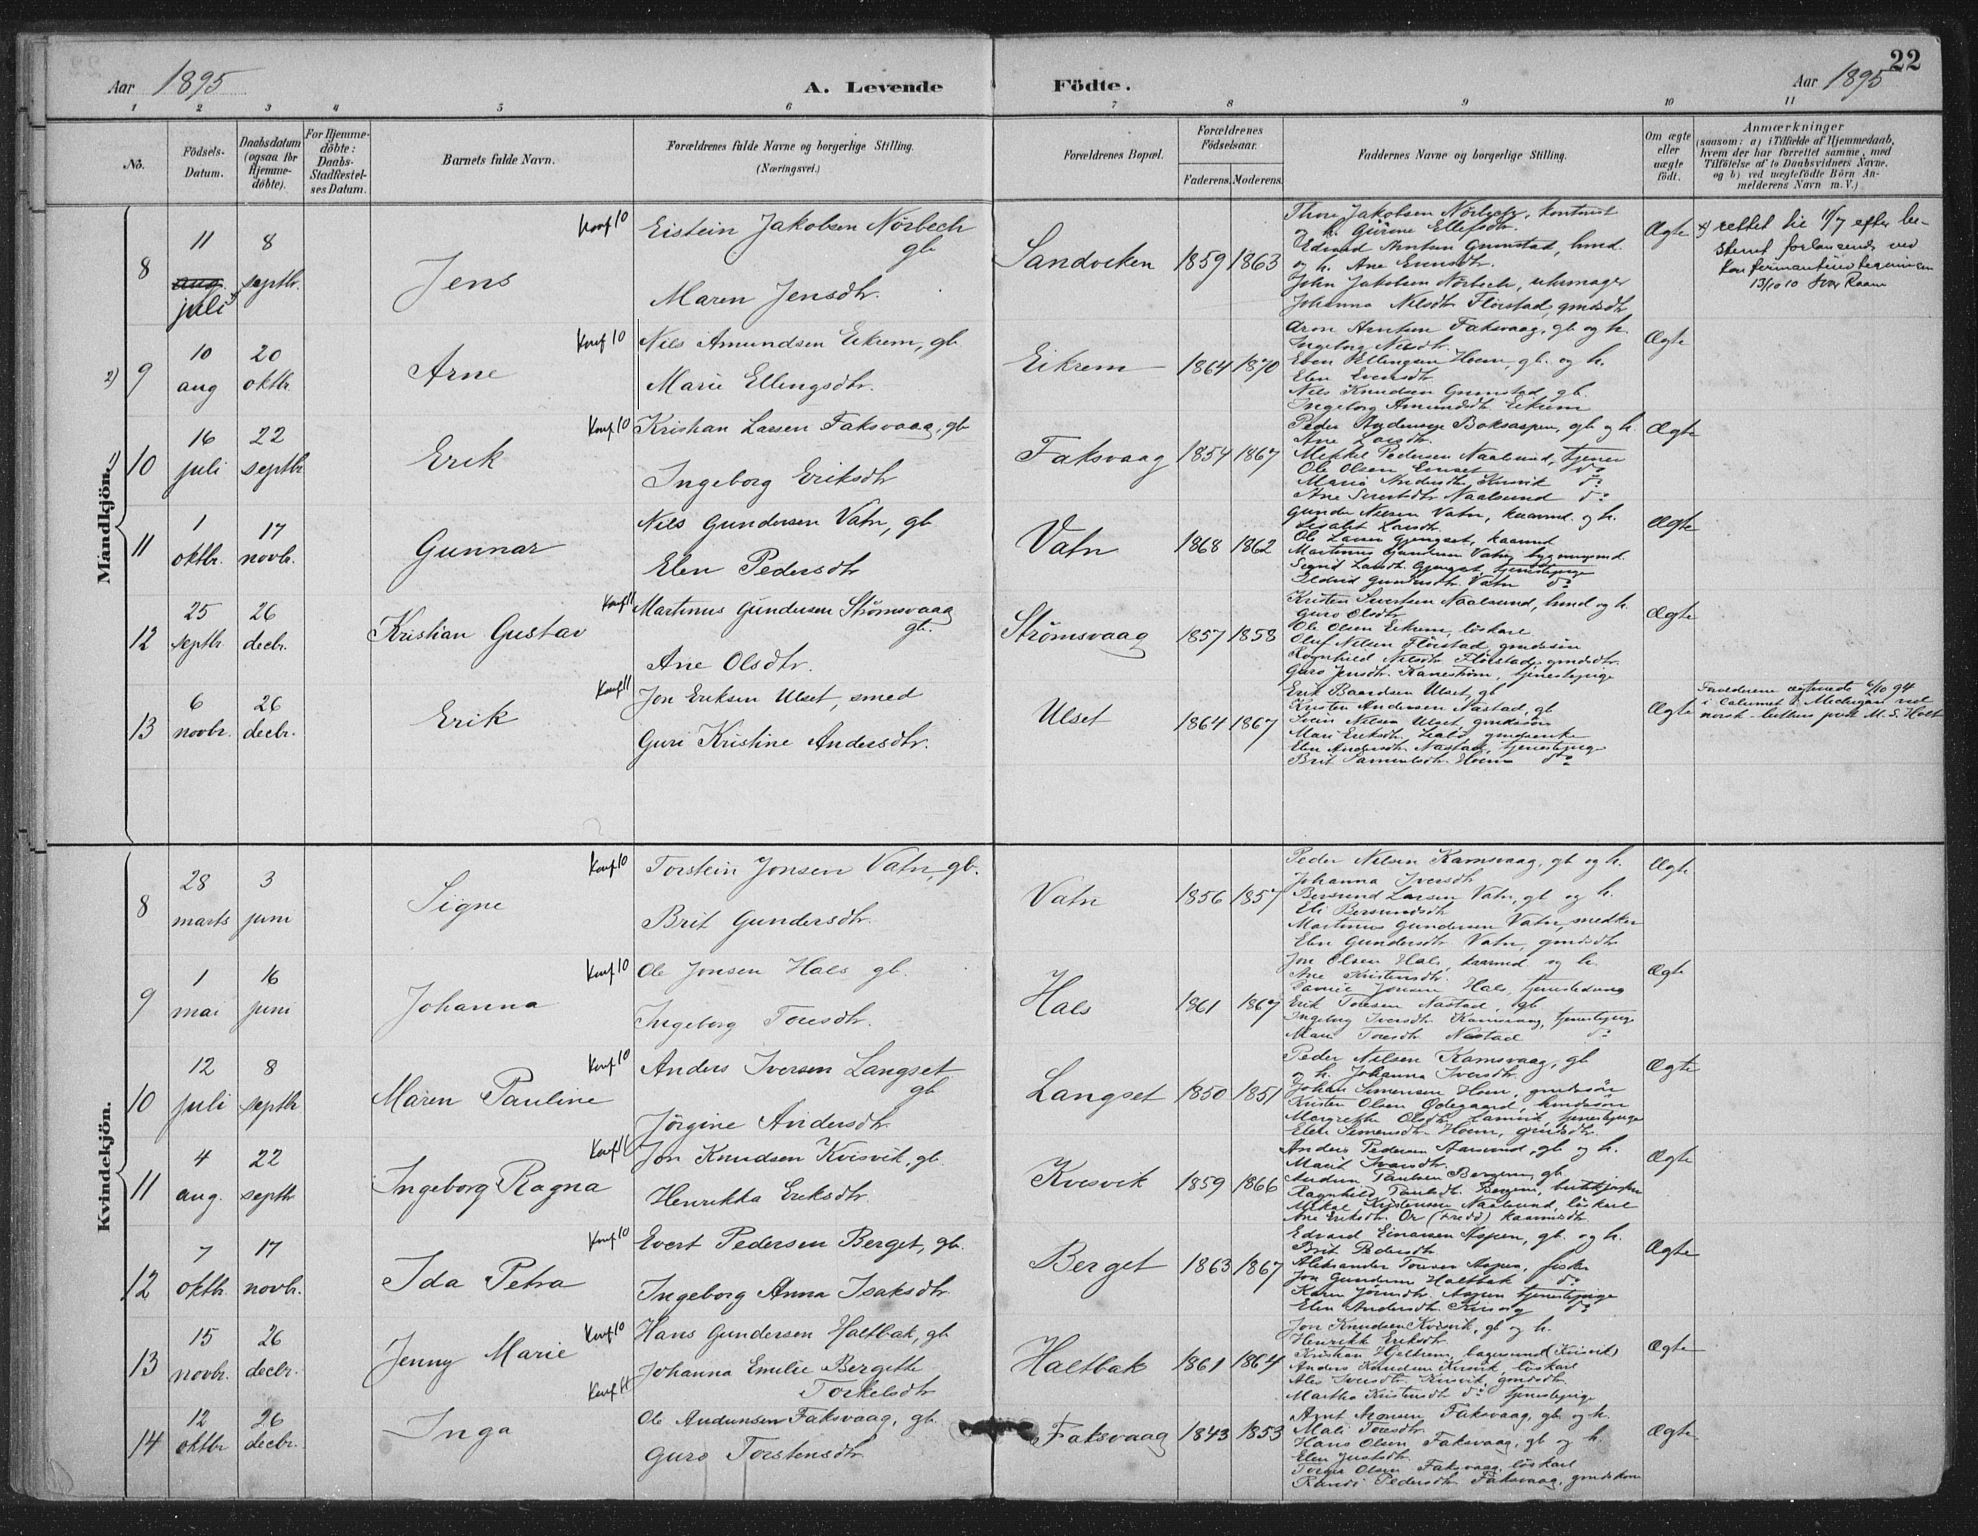 22
Aar 1895
A. Levende Födte.
Aar 1895
1 2 3 4 5 6 7 8 9 10 11
No.
Födsels-Datum.
Daabsdatum (ogsaa för Hjemme-döbte).
For Hjemme-döbte: Daabs-Stadfæstel-ses Datum.
Barnets fulde Navn.
Forældrenes fulde Navne og borgerlige Stilling.
(Næringsvei.)
Forældrenes Bopæl.
Forældrenes Födselsaar.
Faderens. Moderens.
Faddernes Navne og borgerlige Stilling.
Om ægte eller uægte födt.
Anmærkninger
(saasom: a) i Tilfælde af Hjemmedaab,
hvem der har forrettet samme, med
Tilföielse af to Daabsvidners Navne,
og b) ved uægtefödte Börn An-
melderens Navn m. V.)
Mandkjön.
8 11 aug. juli 8 septbr. Jens Konf 10
Eistein Jakobsen Nörbech gb
Maren Jensdtr.
Sandviken 1859 1863
Thore Jakobsen Nörbech, kontorist
og h. Gurine Ellefsdtr.
Edvard Arntsen Grimstad, hmd.
og h. Ane Evensdtr.
John Jakobsen Nörbech, uhrmager
Johanna Nilsdtr Flöistad, gmdsdtr
Ægte
rettet til 11/7 efter be-
stemt forlangende ved
konfirmantindtegningen
13/10 10
2) 9 10 aug 20 oktbr. Arne Konf 10
Nils Amundsen Eikrem, gb.
Marie Ellingsdtr.
Eikrem 1864 1870
Aron Arntsen Faksvaag, gb og h.
Ingeborg Nilsdtr.
Even Ellingsen Hoem, gb. og h.
Elen Evensdtr
Nils Knudsen Grimstad gb.
Ingeborg Amundsdtr. Eikrem
Ægte
1) 10 16 juli 22 septbr Erik Konf 10
Kristian Larsen Faksvaag, gb
Ingeborg Eriksdtr
Faksvaag 1854 1867
Peder Andersen Boksaspen, gb og h.
Ane Larsdtr.
Mikkel Pedersen Naalsund, tjener
Ole Olsen do
Marie Andersdtr. Kvisvik do
Ane Naalsund do
Ægte
11 1 oktbr. 17 novbr. Gunnar
Nils Gundersen Vatn, gb
Elen Pedersdtr
Vatn 1868 1862
Gunder Nilsen Vatn, kaarmd. og h.
Lisabet Larsdtr.
Ole Larsen Gjengset, kaarmd
Martinus Gundersen Vatn, bygningsmd.
Sigrid Larsdtr. Gjengset, tjenestepige
Ildrid Gundersdtr. Vatn do
Ægte
12 25 septbr 26 decbr. Kristian Gustav Konf 11
Martinus Gundersen Strömsvaag gb.
Ane Olsdtr.
Strömsvaag 1857 1858
Kristen Sivertsen Naalsund, hmd og h.
Guro Olsdtr
Ole Olsen Eikrem, löskarl
Oluf Nilsen Flöistad, gmdssön
Ragnhild Nilsdtr. Flöistad, gmdsdtr.
Guro Jensdtr. Kaneström, tjenestepige
Ægte
13 6 novbr. 26 decbr. Erik Konf 11
Jon Eriksen Ulset, smed
Guri Kristine Andersdtr.
Ulset 1864 1867
Erik Baardsen Ulset, gb
Kristen Andersen Nastad, gb
Svein Nilsen Ulset, gmdssön
Mari Eriksdtr.
Elen Andersdtr. Nastad, tjenestepige
Brit Samuelsdtr. Hoem do
Ægte
Forældrene ægteviede 6/10 94
i Calumet i Michigan ved
norsk-luthersk pret M. S. Holt
Kvindekjön.
8 28 marts 3 juni Signe Konf 10
Torstein Jonsen Vatn, gb.
Brit Gundersdtr.
Vatn 1856 1857
Peder Nilsen Kamsvaag, gb og h.
Johanna Iversdtr
Bersvend Larsen Vatn, gb og h.
Eli Bersvendsdtr
Martinus Gundersen Vatn, snedker
Elen Gundersdtr Vatn, gmdsdtr
Ægte
9 1 mai 16 juni Johanna Konf 10
Ole Jonsen Hals gb.
Ingeborg Toresdtr.
Hals 1861 1867
Jon Olsen Hals, kaarmd og h.
Ane Kristensdtr.
Jonsen Hals, tjenestedreng
Erik Toresen Nastad, gb
Ingeborg Iversdtr. Kamsvaag, tjenestepige
Mari Toresdtr Nastad do
Ægte
10 12 juli 8 septbr Maren Pauline Konf 10
Anders Iversen Langset gb
Jörgine Andersdtr.
Langset 1850 1851
Peder Nilsen Kamsvaag, gb
og h. Johanna Iversdtr.
Johan Simensen Hoem, gmdssön
Kristen Olsen Ödegaard, hmdssön
Margrethe Olsdtr. Lanvik, tjenestepige
Elen Simensdtr. Hoem, gmdsdtr
Ægte
11 4 aug. 22 septbr Ingeborg Ragna Konf 11
Jon Knudsen Kvisvik, gb.
Henrikka Eriksdtr.
Kvisvik 1859 1866
Anders Pedersen Aarsund, gb og h.
Marit Ivarsdtr.
Andreas Paulsen Bergem, gb
Ragnhild Paulsdtr. Bergem,
Mikal Kristensen Naalsund, löskarl
Ane Eriksdtr. Ör (Tredö) kaarmdsdtr
Ægte
12 7 oktbr. 17 novbr. Ida Petra Konf 10
Evert Pedersen Berget, gb.
Ingeborg Anna Isaksdtr.
Berget 1863 1867
Edvard Einarsen Aspen, gb. og h.
Brit Pedersdtr
Aleksander Toresen Aspen, fisker
Jon Gundersen Haltbak do
Karen Jonsdtr. Aspen tjenestepige
Elen Andersdtr. Kvisvig do
Ægte
13 15 novbr. 26 decbr. Jenny Marie Konf 10
Hans Gundersen Haltbak, gb.
Johanna Emilie Bergitte
Torkelsdtr
Haltbak 1861 1864
Jon Knudsen Kvisvik, gb og h.
Henrikke Eriksdtr.
Kristian Hjelkrem, bagersvend (Kvisvik)
Anders Knudsen Kvisvik, löskarl
Ales Iversdtr. Kvisvik, gmdsdtr.
Martha Kristensdtr do tjenestepige
Ægte
14 12 oktbr 26 decbr. Inga Konf 11
Ole Andersen Faksvaag, gb.
Guro Torstensdtr.
Faksvaag 1843 1853
Arnt Aronsen Faksvaag, gb og h.
Mali Toresdtr.
Hans Olsen Faksvaag, gb og h.
Elen Justsdtr.
Torger Olsen Faksvaag, löskarl
Randi Pedersdtr Faksvaag, gmdskone
Ægte